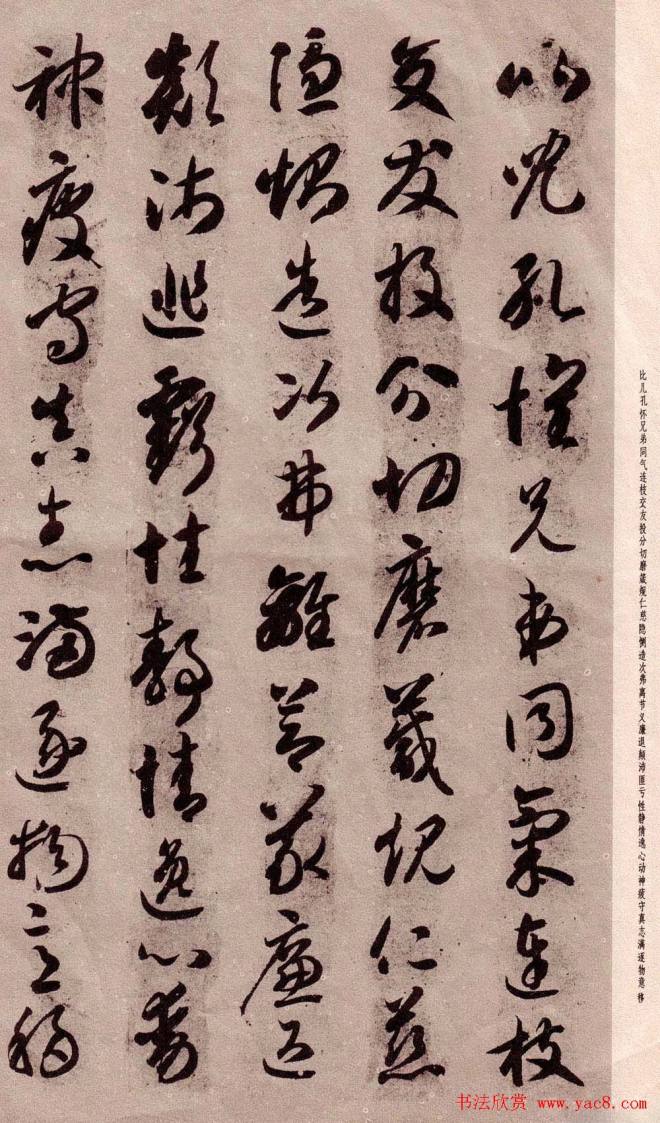 比儿孔怀兄弟同气连枝交友投分切磨箴规仁慈隐恻造次弗离节义廉退颠沛匪亏性静情逸心动神疲守真志满逐物意移
比兒孔懷兄弟同氣連枝
交友投分切磨箴規仁慈
隱惻造次弗離節義廉退
顛沛匪虧性靜情逸心動
神疲守真志滿逐物意移
书法欣赏 www.yac8.com